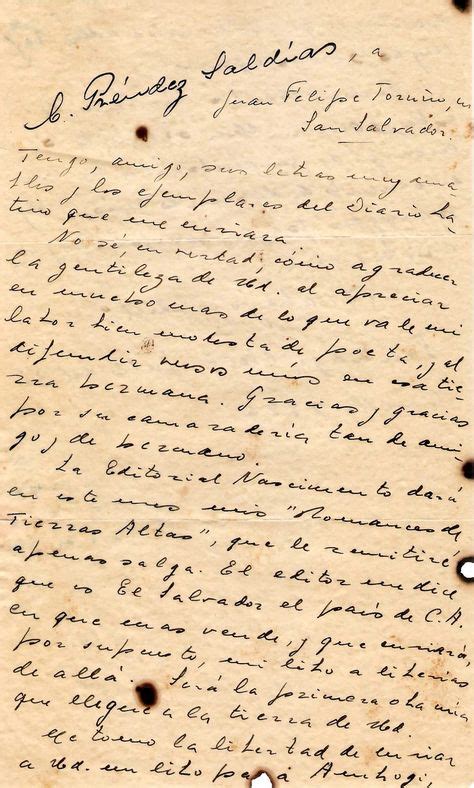 C. Préndez Saldías, a
Juan Felipe Toruño, en
San Salvador.
Tengo, amigo, sus letras muy ama-
bles y los ejemplares del Diario La-
tino que me enviara.
No sé, en verdad, cómo agradecer
la gentileza de Ud. al apreciar
en mucho más de lo que vale mi
labor bien modesta de poeta, y al
difundir versos míos en esa tie-
rra hermana. Gracias, y gracias
por su camaradería tan de ami-
go, y de hermano.
La Editorial Nascimento dará
en este mes mis "Romances de
Tierras Altas", que le remitiré
apenas salga. El editor me dice
que es El Salvador el país de C. A.
en que más vende, y que enviará,
por supuesto, mi libro a librerías
de allá. Será la primera obra mía
que llegue a la tierra de Ud.
Me tomo la libertad de enviar
a Ud. un libro para Ambrogi,